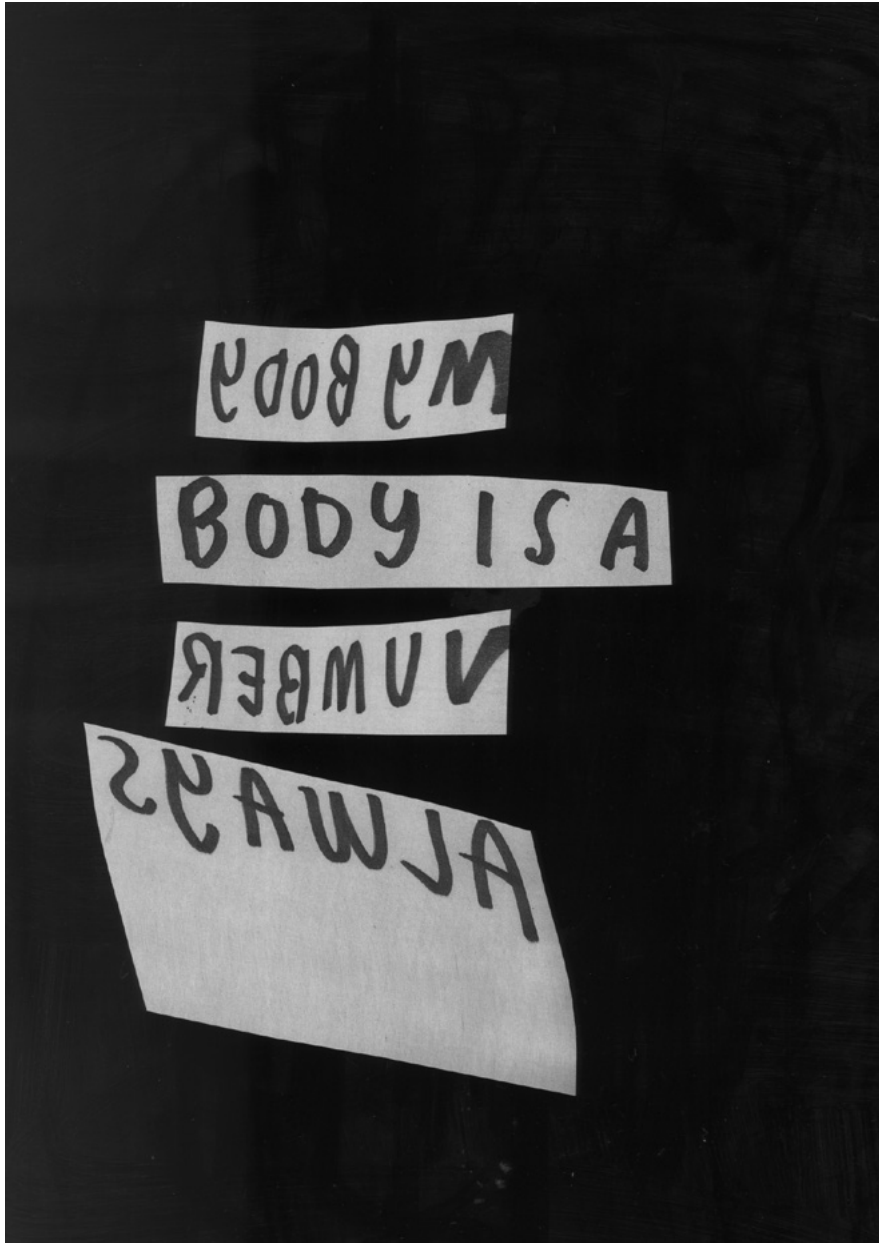 MY BODY
BODY IS A
NUMBER
ALWAYS